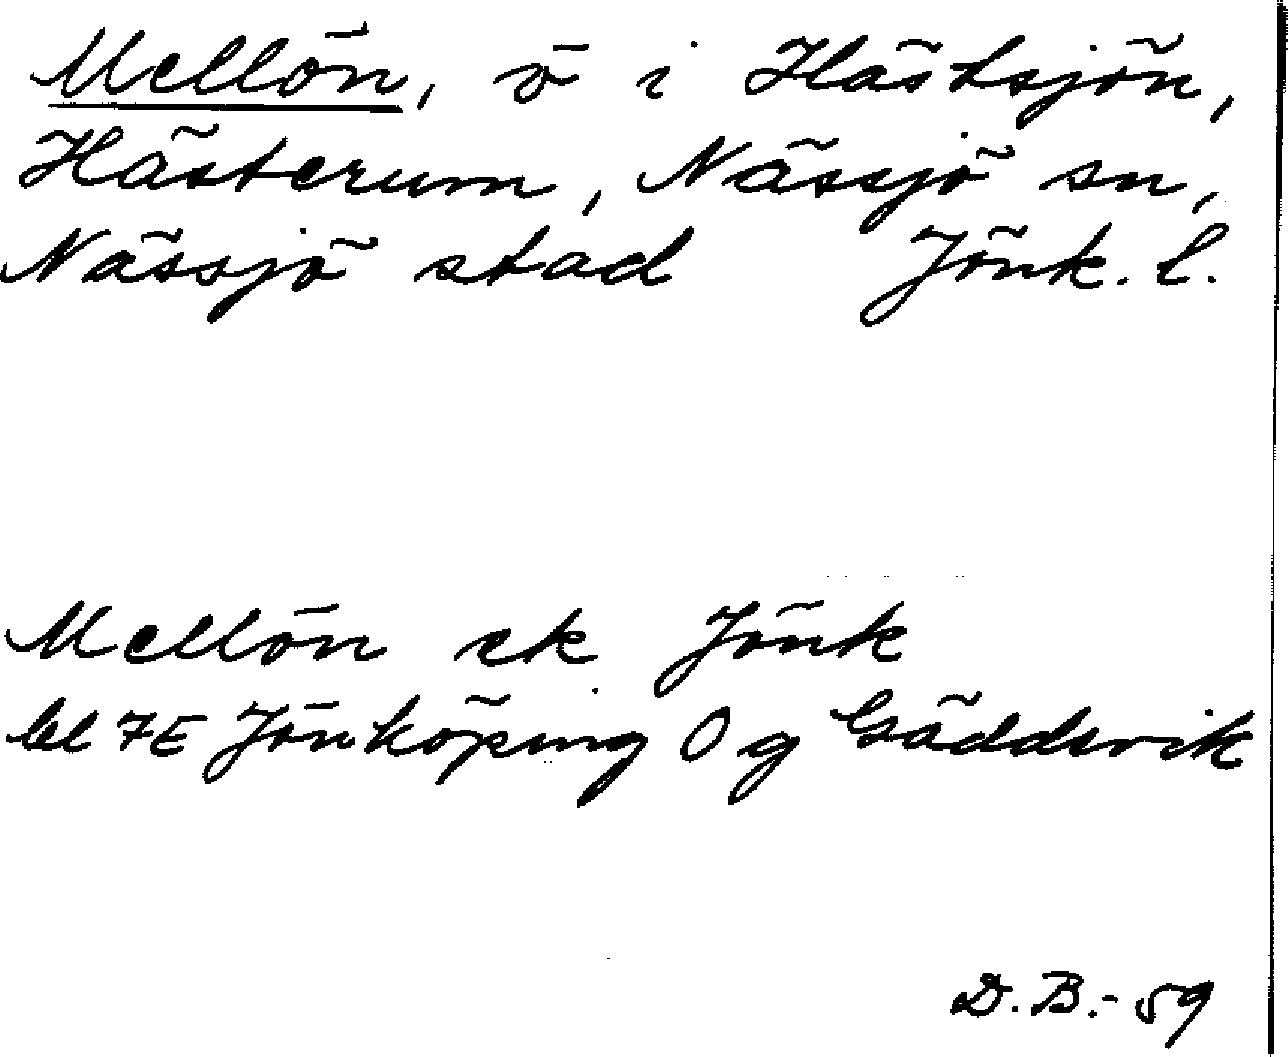 Mellön, ö i Hästsjön,
Hästerum, Nässjö sn,
Nässjö stad Jönk. l.
Mellön ek Jönk
bl 7E Jönköping O g Gäddsvik
D.B.-59